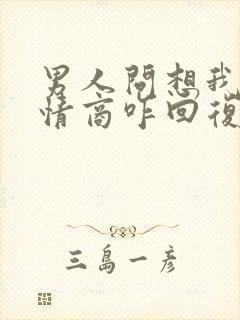 男人問想我
情商咋回復
三島一彦